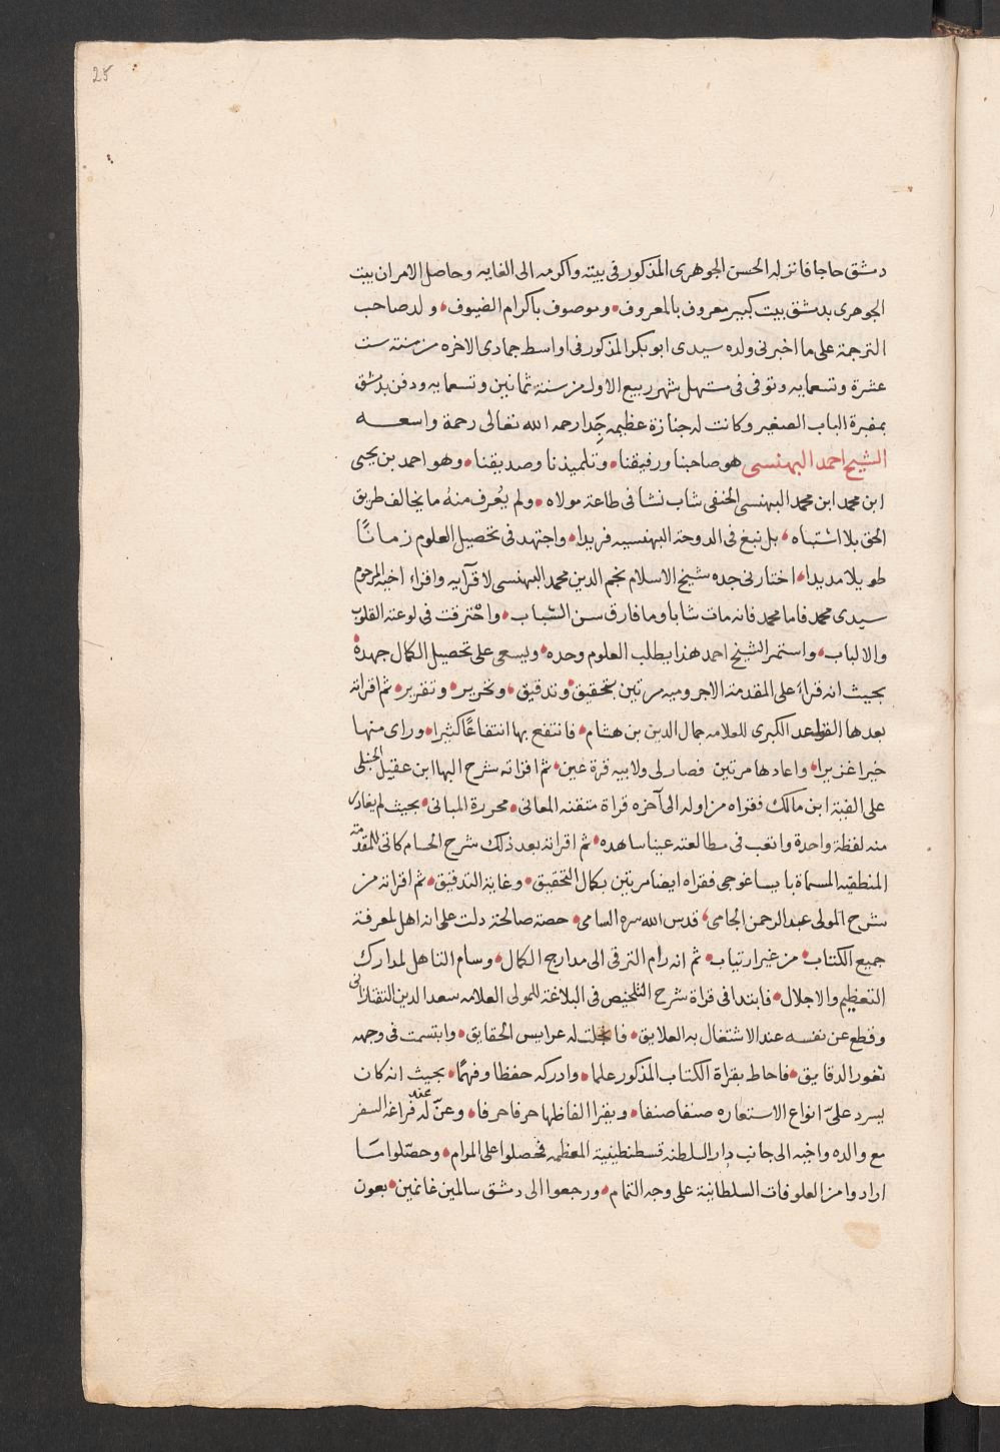 25
دمشق حاجا فانزله الحسن الجوهرى المذكور فى بيته واكرمه الى الغايه وحاصل الامر ان بيت
الجوهرى بدمشق بيت كبير معروف بالمعروف • وموصوف باكرام الضيوف • ولد صاحب
الترجمة على ما اخبرنى ولده سيدى ابو بكر المذكور فى اواسط جمادى الاخره من سنة ست
عشرة وتسعمايه وتوفى فى مستهل شهر ربيع الاول من سنة ثمانين وتسعمايه ودفن بدمشق
بمقبرة الباب الصغير وكانت له جنازة عظيمه جدا رحمه الله تعالى رحمة واسعه
الشيخ احمد البهنسى هو صاحبنا ورفيقنا • وتلميذنا وصديقنا • وهو احمد بن يحيى
ابن محمد ابن محمد البهنسى الحنفى شاب نشا فى طاعة مولاه • ولم يُعرف منهُ ما يخالف طريق
الحق بلا اشتباه • بل نبغ فى الدوحة البهنسيه فريدا • واجتهد فى تحصيل العلوم زمانًا
طويلا مديدا • اختارنى جده شيخ الاسلام نجم الدين محمد البهنسى لاقرآيه واقراء اخيه المرحوم
سيدى محمد فاما محمد فانه مات شابا وما فارق سن الشباب • واحترقت فى لوعته القلوب
والالباب • واستمر الشيخ احمد هذا يطلب العلوم وحده • ويسعى على تحصيل الكمال جهدهُ
بحيث انه قراء على المقدمة الاجروميه مرتين بتحقيق • وتدقيق • وتحرير • وتقرير • ثم اقراته
بعدها القواعد الكبرى للعلامه جمال الدين بن هشام • فانتفع بها انتفاعًا كثيرا • وراى منها
خيرا غزيرا • واعادها مرتين فصار لى ولابيه قرة عين • ثم اقراته شرح البها ابن عقيل الحنبلى
على الفية ابن مالك فقراه من اوله الى آخره قراة متقنه المعانى • محررة المبانى • بحيث لم يغادر
منه لفظة واحدة واتعب فى مطالعته عينا ساهده • ثم اقراته بعد ذلك شرح الحسام كاتى للمقدمة
المنطقيه المسماة بايساغوجى فقراه ايضا مرتين بكمال التحقيق • وغاية التدقيق • ثم اقراته من
شرح المولى عبد الرحمن الجامى • قدس الله سره السامى • حصة صالحة دلت على انه اهل لمعرفة
جميع الكتاب • من غير ارتياب • ثم انه رام الترقى الى مدارج الكمال • وسام التاهل لمدارك
التعظيم والاجلال • فابتدا فى قراة شرح التلخيص فى البلاغة للمولى العلامه سعد الدين التفتازانى
وقطع عن نفسه عند الاشتغال به العلايق • فانجلت له عرايس الحقايق • وابتسمت فى وجهه
ثغور الدقايق • فاحاط بقراة الكتاب المذكور علما • وادركه حفظا وفهمًا • بحيث انه كان
يسرد علىّ انواع الاستعاره صنفا صنفا • ويقرا الفاظها حرفا حرفا • وعنّ له عند فراغه السفر
مع والده واخيه الى جانب دار السلطنه قسطنطينية المعظمه فحصلوا على المرام • وحصّلوا مَا
ارادوا من العلوفات السلطانية على وجه التمام • ورجعوا الى دمشق سالمين غانمين • بعون